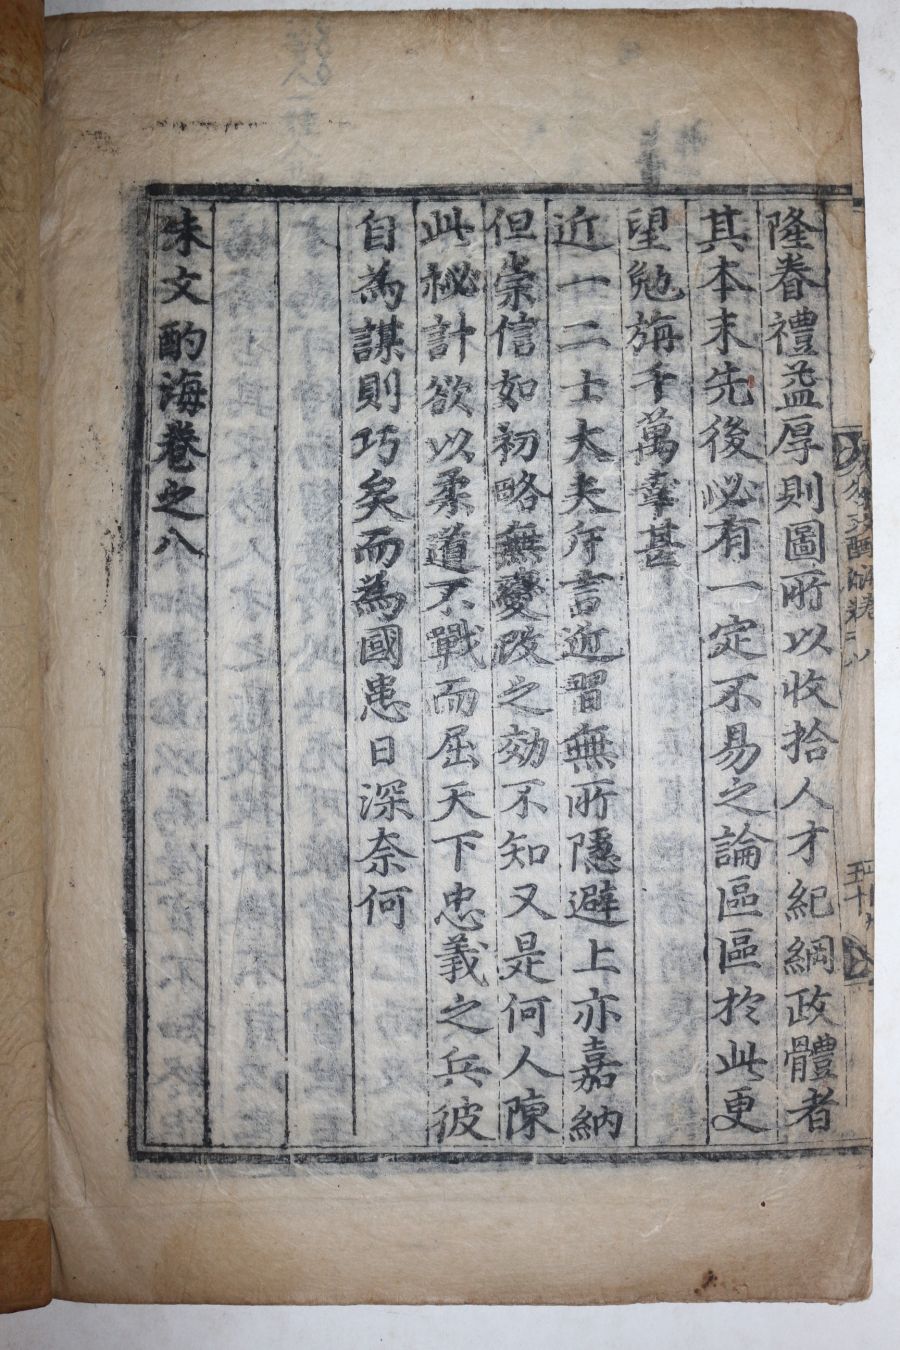 隆眷禮益厚則圖所以收拾人才紀綱政體者
其本末先後必有一定不易之論區區於此更
望勉旃千萬幸甚
近一二士大夫斥言近習無所隱避上亦嘉納
但崇信如初略無變改之効不知又是何人陳
此秘計欲以柔道不戰而屈天下忠義之兵彼
自為謀則巧矣而為國患日深奈何
朱文酌海卷之八